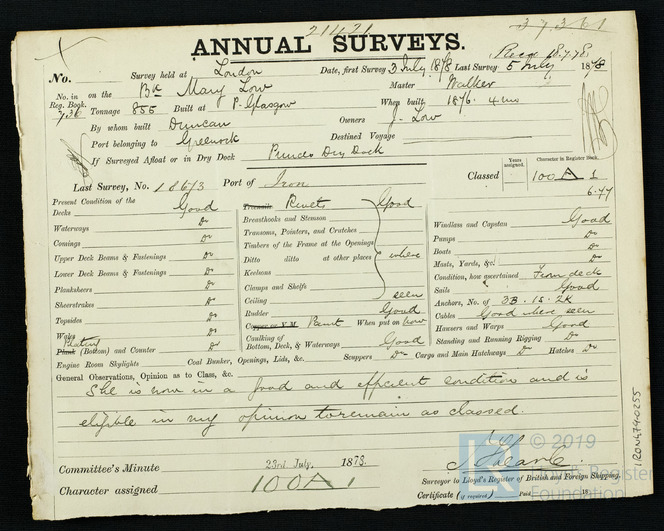 21421
37361
ANNUAL SURVEYS.
Recd 18.7.78
No. Survey held at London Date, first Survey 3 July 1878 Last Survey 5 July 1878
No. in Reg. Book. 736 on the Bk Mary Low Master Walker
Tonnage 855 Built at P. Glasgow When built, 1876. 4 mo
By whom built Duncan Owners J. Low
Port belonging to Greenock Destined Voyage
If Surveyed Afloat or in Dry Dock Dry Dock
Years assigned. Character in Register Book.
Last Survey, No. 18673 Port of Iron Classed 100 A 1
6.77
Present Condition of the
Decks Good
Waterways Do
Comings Do
Upper Deck Beams & Fastenings Do
Lower Deck Beams & Fastenings Do
Planksheers Do
Sheerstrakes Do
Topsides Do
Wales Do
Plating
Plank (Bottom) and Counter Do
Treenails Rivets Good
Breasthooks and Stemson
Transoms, Pointers, and Crutches
Timbers of the Frame at the Openings
Ditto ditto at other places where
Keelsons
Clamps and Shelfs
Ceiling seen
Rudder Good
Copper or Y.M. Paint When put on now
Caulking of
Bottom, Deck, & Waterways Good
Windlass and Capstan Good
Pumps Do
Boats Do
Masts, Yards, &c. Do
Condition, how ascertained From deck
Sails Good
Anchors, No. of 3B. 1S. 2K
Cables Good where seen
Hawsers and Warps Good
Standing and Running Rigging Do
Engine Room Skylights Coal Bunker, Openings, Lids, &c. Scuppers Do Cargo and Main Hatchways Do Hatches Do
General Observations, Opinion as to Class, &c.
She is now in a good and efficient condition and is
eligible in my opinion to remain as classed.
Committee's Minute 23rd July, 1878.
Character assigned 100A1
Surveyor to Lloyd's Register of British and Foreign Shipping.
Certificate (if required) Paid 18
IRON479-0255
© 2019
Lloyd's Register
Foundation